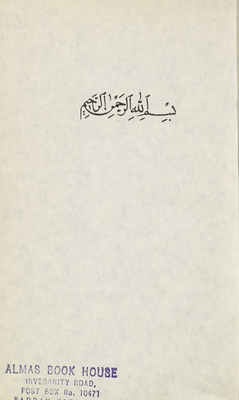 بِسْمِ اللهِ الرَّحْمٰنِ الرَّحِيْمِ
ALMAS BOOK HOUSE
INVERANITY ROAD,
POST BOX No. 10471